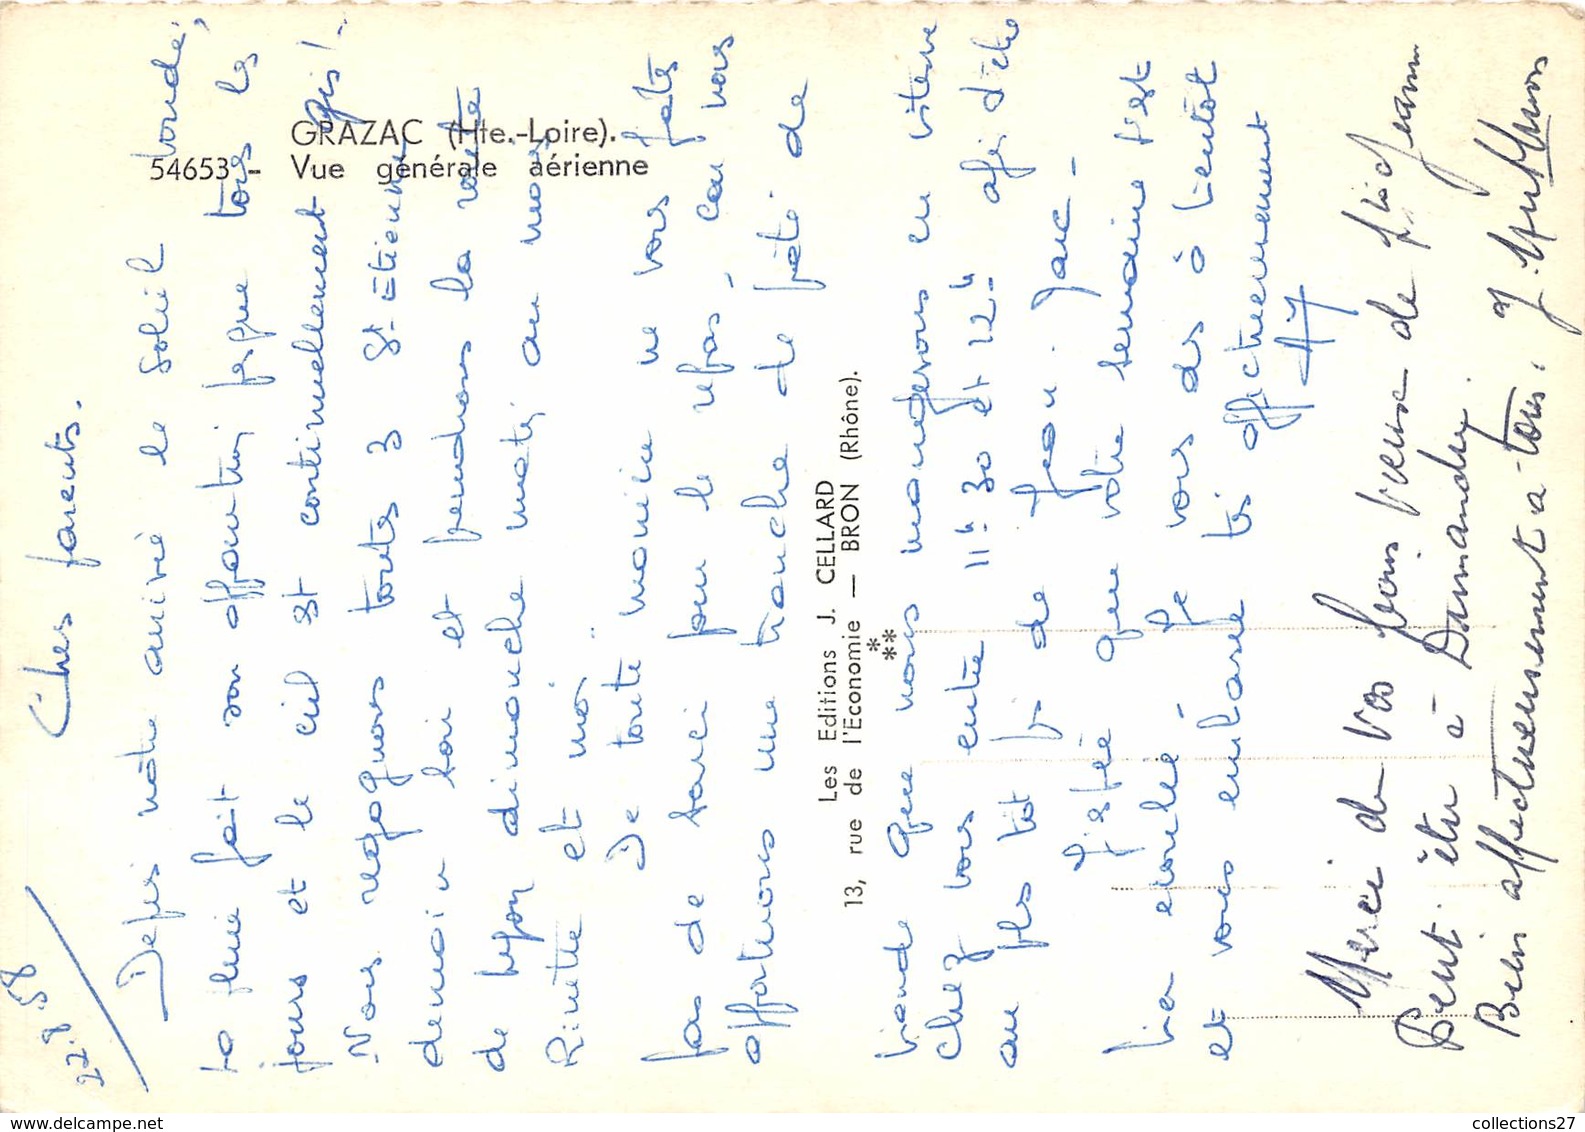 GRAZAC (Hte.-Loire).
54653 - Vue générale aérienne
22.8.58
Chers parents.
Depuis nôtre arrivée le soleil boude,
la pluie fait son apparition presque tous les
jours et le ciel est continuellement gris! -
Nous regagnons toutes 3 St-Etienne
demain soir et prendrons la route
de Lyon dimanche matin, au moins
Rinette et moi."
De toute manière ne vous faites
pas de souci pour le repas, car nous
apportons une tranche de pâté de
viande que nous mangerons en vitesse
chez vous entre 11h-30 et 12h- afin d'être
au plus tôt de Jean. Marc -
J'espère que votre semaine s'est
bien écoulée - Je vous dis à bientôt
et vous embrasse très affectueusement
Les Editions J. CELLARD
13, rue de l'Economie — BRON (Rhône).
***
Merci de vos bons vœux de Jeanne
Peut-être à Dimanche.
Bien affectueusement à tous.
collections27